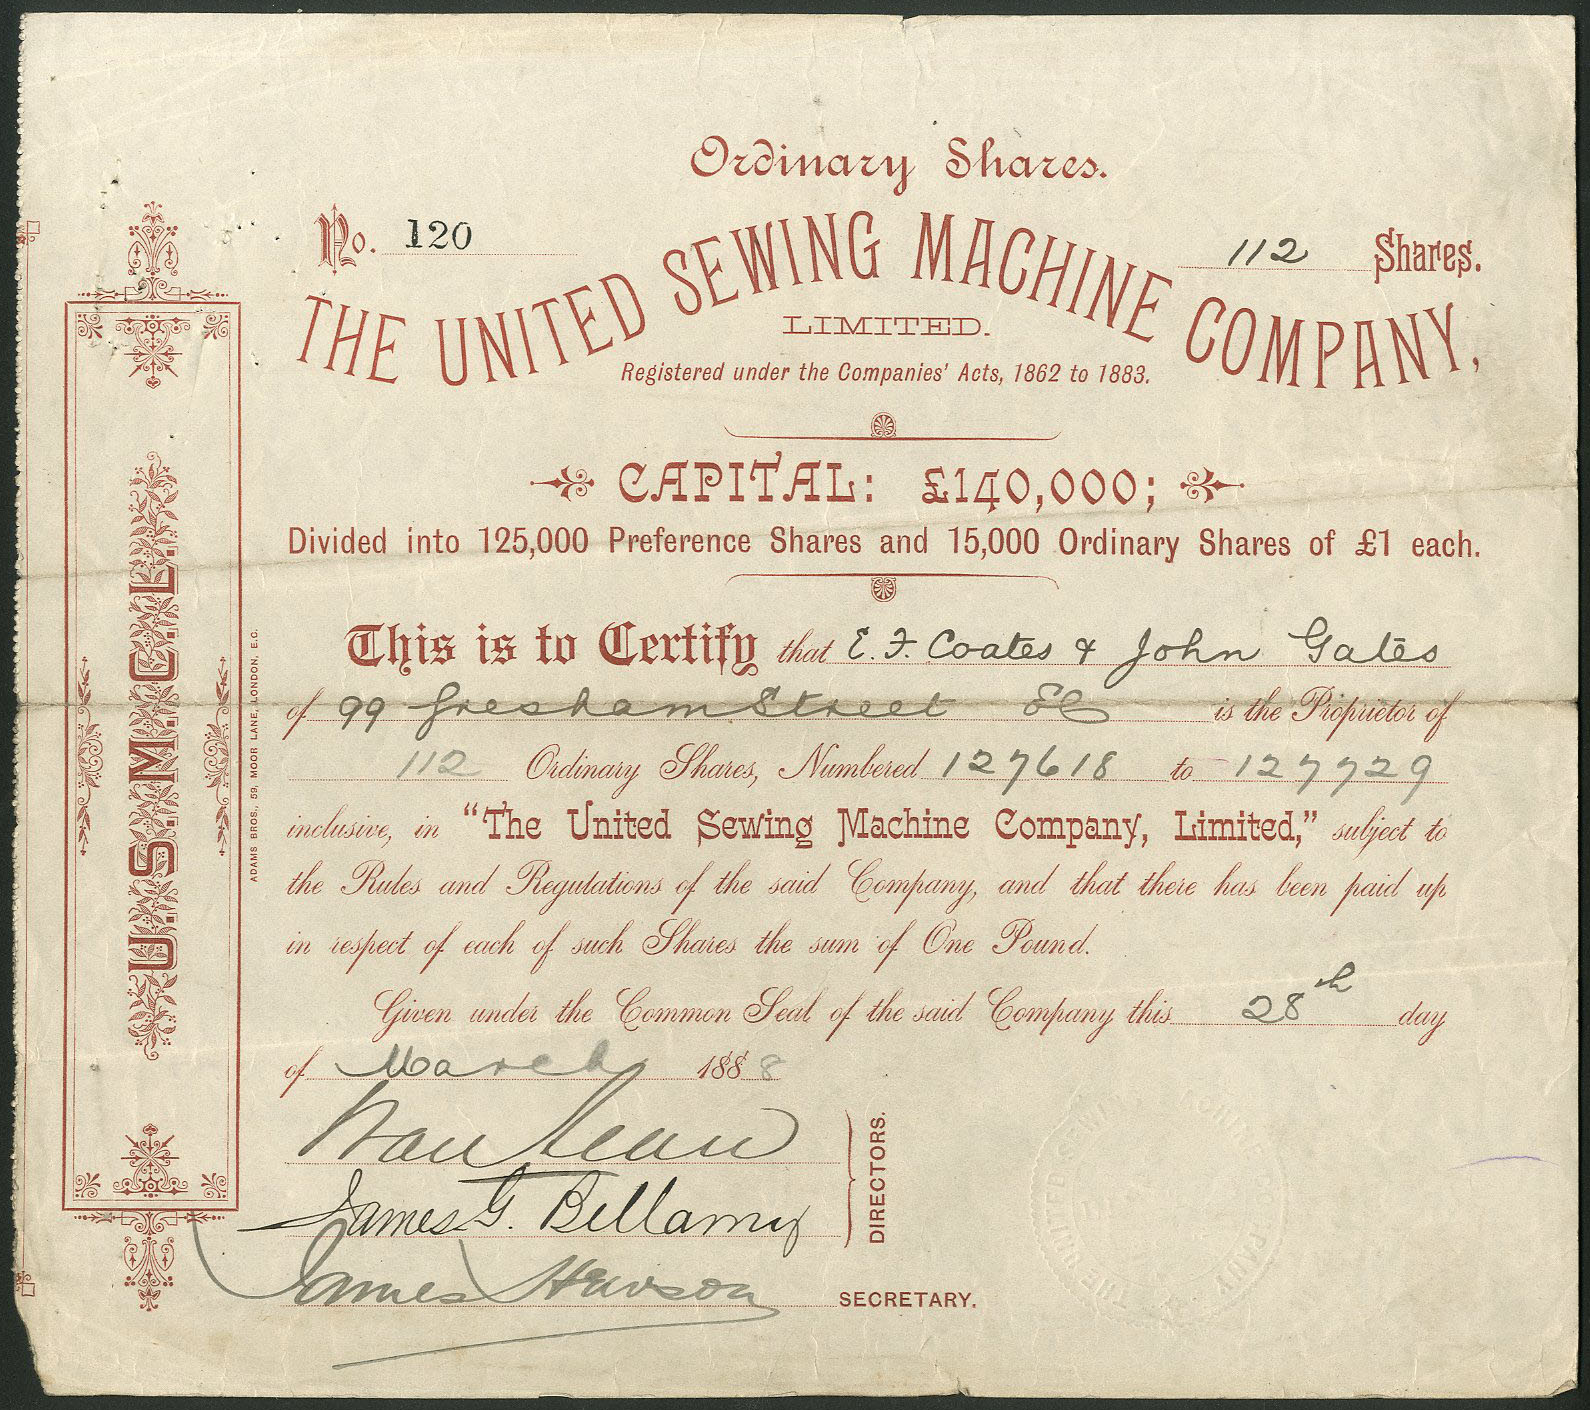 Ordinary Shares.
No. 120
112 Shares.
THE UNITED SEWING MACHINE COMPANY,
LIMITED.
Registered under the Companies' Acts, 1862 to 1883.
CAPITAL: £140,000;
Divided into 125,000 Preference Shares and 15,000 Ordinary Shares of £1 each.
This is to Certify that E. F. Coates & John Gates
of 99 Gresham Street EC is the Proprietor of
112 Ordinary Shares, Numbered 127618 to 127729
inclusive, in "The United Sewing Machine Company, Limited," subject to
the Rules and Regulations of the said Company, and that there has been paid up
in respect of each of such Shares the sum of One Pound.
Given under the Common Seal of the said Company this 28th day
of March 1888
James G. Bellamy
DIRECTORS.
James Hewson
SECRETARY.
U.S.M.C.L.
ADAMS BROS., 59, MOOR LANE, LONDON, E.C.